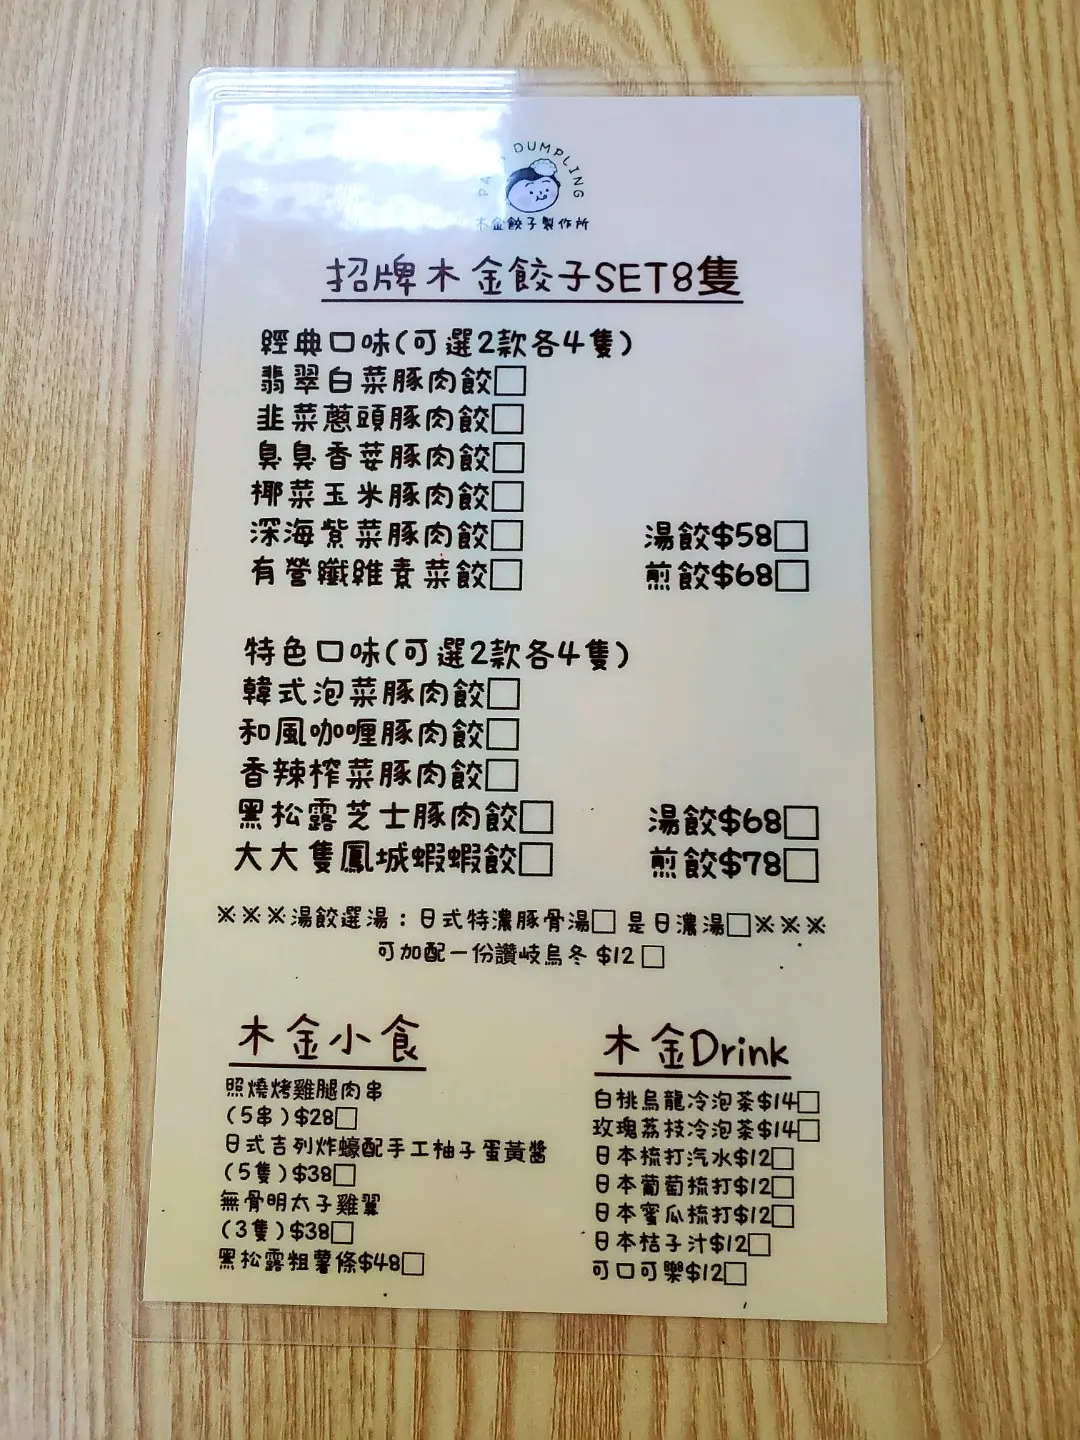 DUMPLING
木金餃子製作所
招牌木金餃子SET8隻
經典口味(可選2款各4隻)
翡翠白菜豚肉餃□
韭菜蔥頭豚肉餃□
臭臭香荽豚肉餃□
椰菜玉米豚肉餃□
深海紫菜豚肉餃□ 湯餃$58□
有營纖維素菜餃□ 煎餃$68□
特色口味(可選2款各4隻)
韓式泡菜豚肉餃□
和風咖喱豚肉餃□
香辣榨菜豚肉餃□
黑松露芝士豚肉餃□ 湯餃$68□
大大隻鳳城蝦蝦餃□ 煎餃$78□
※※※湯餃選湯：日式特濃豚骨湯□ 是日濃湯□※※※
可加配一份讚岐烏冬 $12 □
木金小食
照燒烤雞腿肉串
(5串)$28□
日式吉列炸蠔配手工柚子蛋黃醬
(5隻)$38□
無骨明太子雞翼
(3隻)$38□
黑松露粗薯條$48□
木金Drink
白桃烏龍冷泡茶$14□
玫瑰荔枝冷泡茶$14□
日本梳打汽水$12□
日本葡萄梳打$12□
日本蜜瓜梳打$12□
日本桔子汁$12□
可口可樂$12□